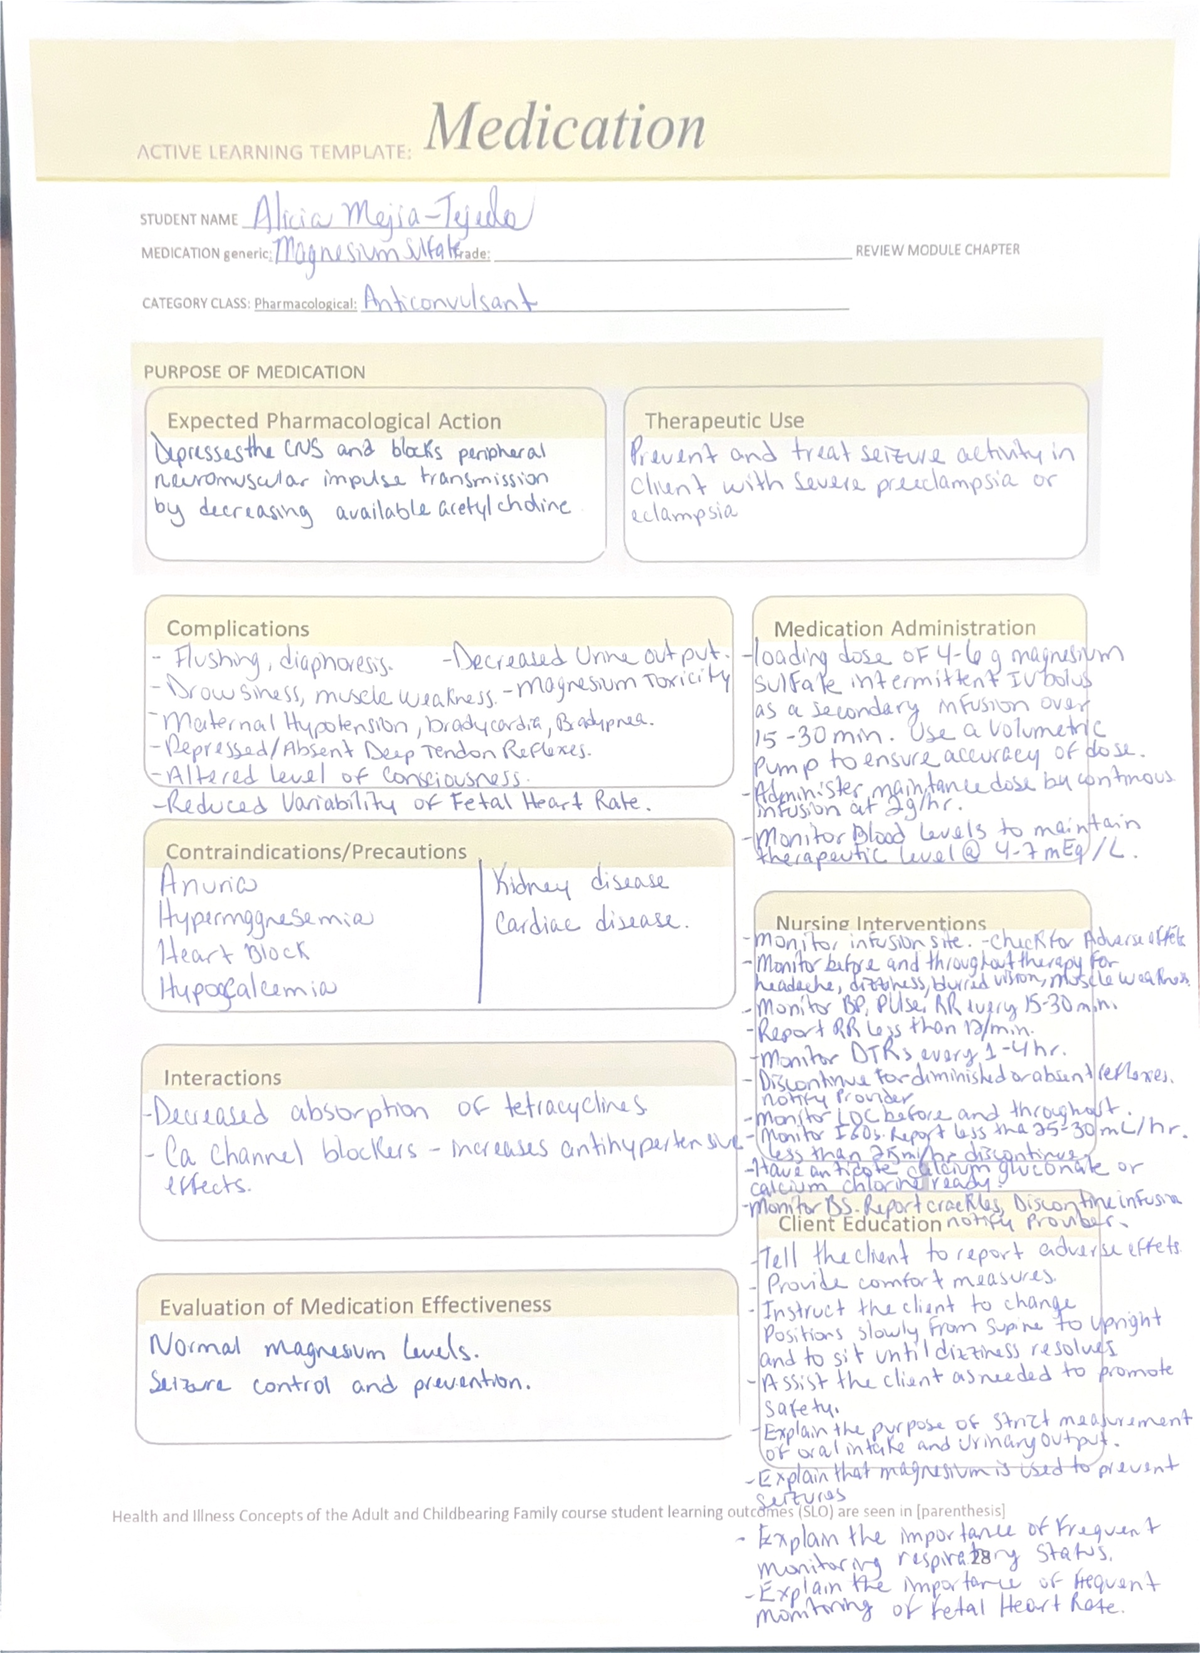 ACTIVE LEARNING TEMPLATE: Medication
STUDENT NAME Alicia Mejia-Tejeda
MEDICATION generic: Magnesium Sulfate trade: REVIEW MODULE CHAPTER
CATEGORY CLASS: Pharmacological: Anticonvulsant
PURPOSE OF MEDICATION
Expected Pharmacological Action
Depresses the CNS and blocks peripheral
neuromuscular impulse transmission
by decreasing available acetylcholine
Therapeutic Use
Prevent and treat seizure activity in
client with severe preeclampsia or
eclampsia
Complications
- Flushing, diaphoresis. - Decreased Urine output.
- Drowsiness, muscle weakness. - Magnesium Toxicity
- Maternal Hypotension, bradycardia, Bradypnea.
- Depressed/Absent Deep Tendon Reflexes.
- Altered level of consciousness.
- Reduced Variability of Fetal Heart Rate.
Medication Administration
- loading dose of 4-6 g magnesium
sulfate intermittent IV bolus
as a secondary infusion over
15-30 min. Use a volumetric
pump to ensure accuracy of dose.
- Administer maintance dose by continous
infusion at 2g/hr.
- Monitor Blood levels to maintain
therapeutic level @ 4-7 mEq/L.
Contraindications/Precautions
Anuria
Hypermagnesemia
Heart Block
Hypocalcemia
Kidney disease
Cardiac disease.
Nursing Interventions
- Monitor infusion site. - check for Adverse effets
- Monitor before and throughout therapy for
headache, dizziness, blurred vision, muscle weakness.
- Monitor BP, Pulse, RR every 15-30 min.
- Report RR less than 12/min.
- Monitor DTRs every 1-4 hr.
- Discontinue for diminished or absent reflexes.
notify Provider
- Monitor LOC before and throughout.
- Monitor I&Os. Report less tha 25-30 mL/hr.
less than 25ml/hr discontinue
- Have anticote calcium gluconate or
calcium chlorine ready.
- Monitor BS. Report crackles, Discontine infusion
notify Provider.
Interactions
- Decreased absorption of tetracyclines
- Ca channel blockers - increases antihypertensive
effects.
Client Education
- Tell the client to report adverse effets
- Provide comfort measures.
- Instruct the client to change
Positions slowly from supine to upright
and to sit until dizziness resolves
- Assist the client as needed to promote
safety.
- Explain the purpose of strict measurement
of oral intake and urinary output.
- Explain that magnesium is used to prevent
seizures
- Explain the importance of frequent
monitoring respiratory status.
- Explain the importance of frequent
monitoring of Fetal Heart Rate.
Evaluation of Medication Effectiveness
Normal magnesium levels.
Seizure control and prevention.
Health and Illness Concepts of the Adult and Childbearing Family course student learning outcomes (SLO) are seen in [parenthesis]
28